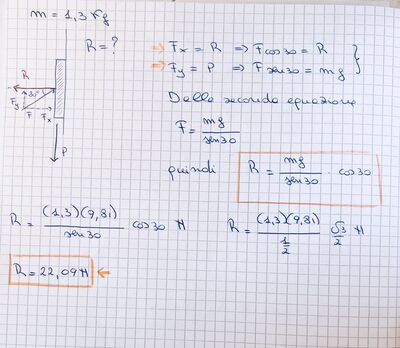 m = 1,3 Kg
R = ?
R
30°
Fy
F
Fx
P
⇒ Fx = R ⇒ F cos 30 = R
⇒ Fy = P ⇒ F sen 30 = mg }
Dalla seconda equazione
F = mg / sen 30
quindi R = mg / sen 30 · cos 30
R = (1,3)(9,81) / sen 30 cos 30 N
R = (1,3)(9,81) / 1/2 √3/2 N
R = 22,09 N ←